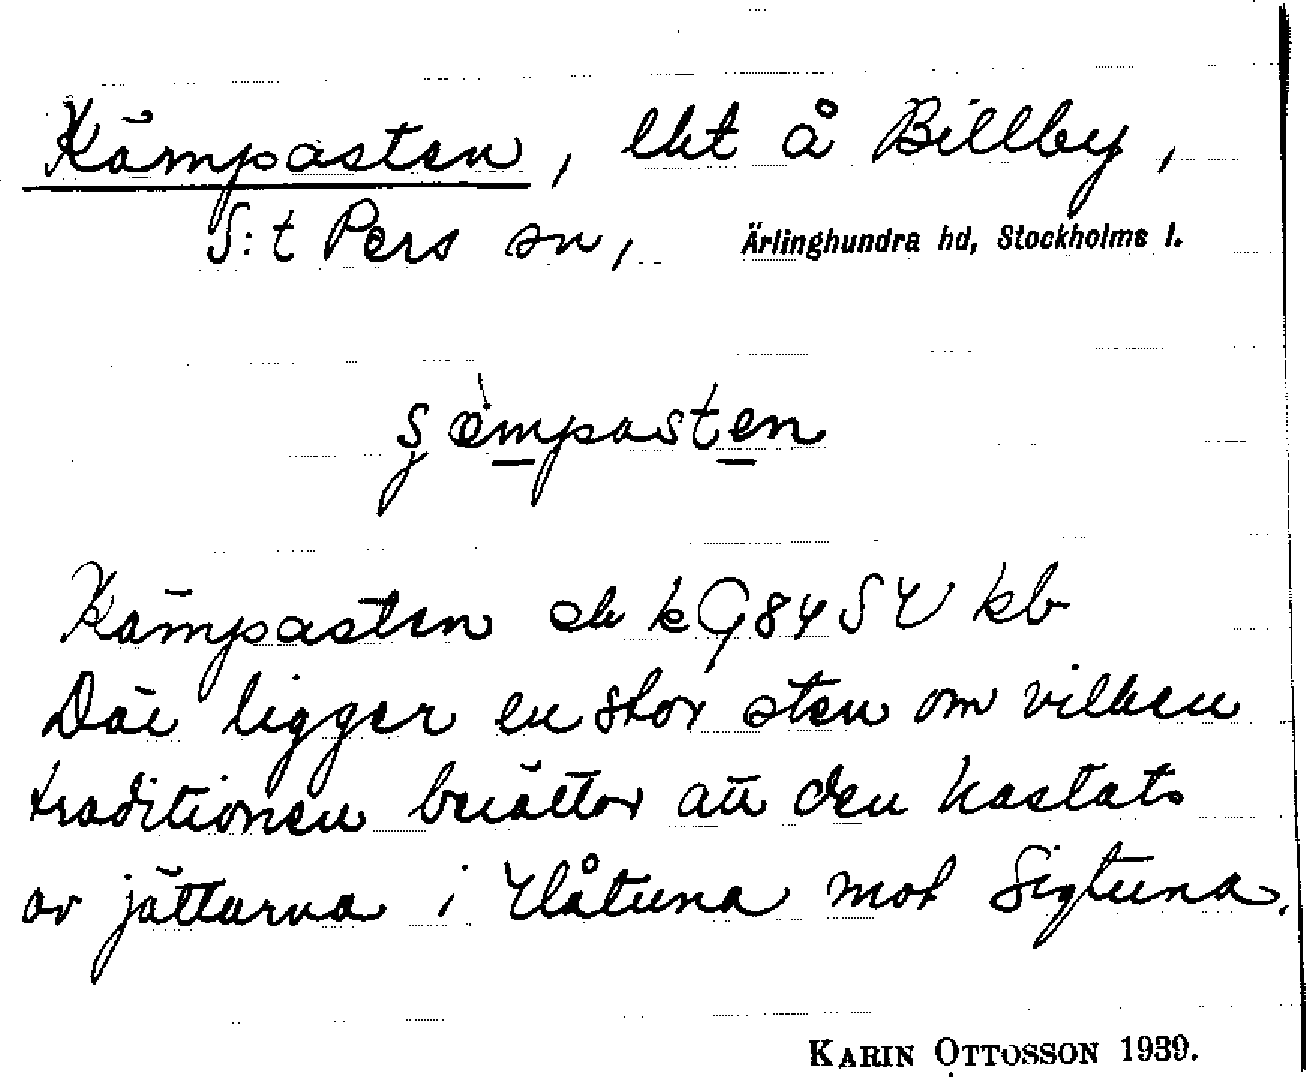 Kämpasten, lkt å Billby,
S:t Pers sn, Ärlinghundra hd, Stockholms l.
çèmpasten
Kämpasten ek kG84 SV kb
Där ligger en stor sten om vilken
traditionen berättar att den kastats
av jättarna i Håtuna mot Sigtuna.
KARIN OTTOSSON 1939.